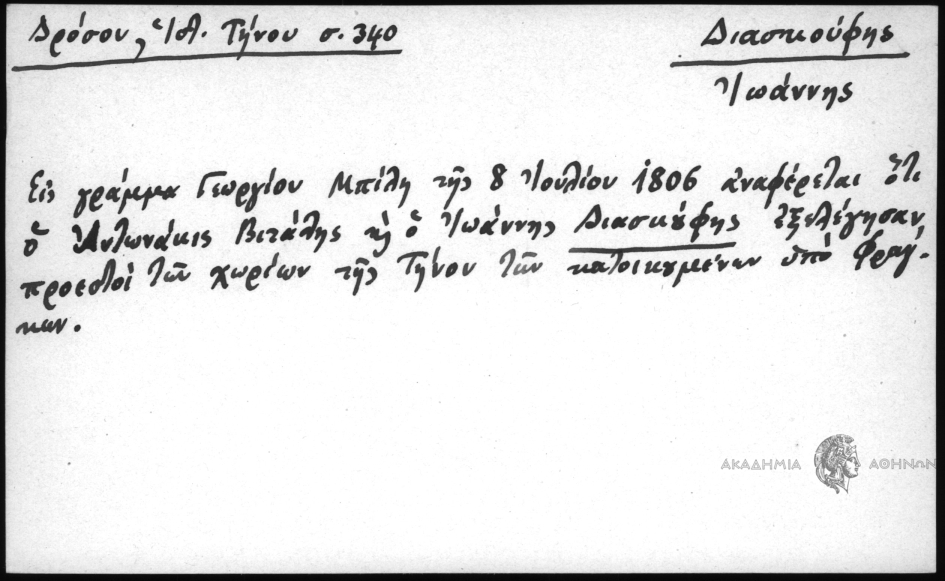 Δρόσου, Ἱστ. Τήνου σ. 340
Διασκούφης
Ἰωάννης
Εἰς γράμμα Γεωργίου Μπίλη τῆς 8 Ἰουλίου 1806 ἀναφέρεται ὅτι
ὁ Ἀντωνάκις Βιτάλης ϗ ὁ Ἰωάννης Διασκȣφης ἐξελέγησαν
προεστοὶ τῶν χωρίων τῆς Τήνου τῶν κατοικȣμένων ὑπὸ Φραγ-
κων.
ΑΚΑΔΗΜΙΑ ΑΘΗΝΩΝ